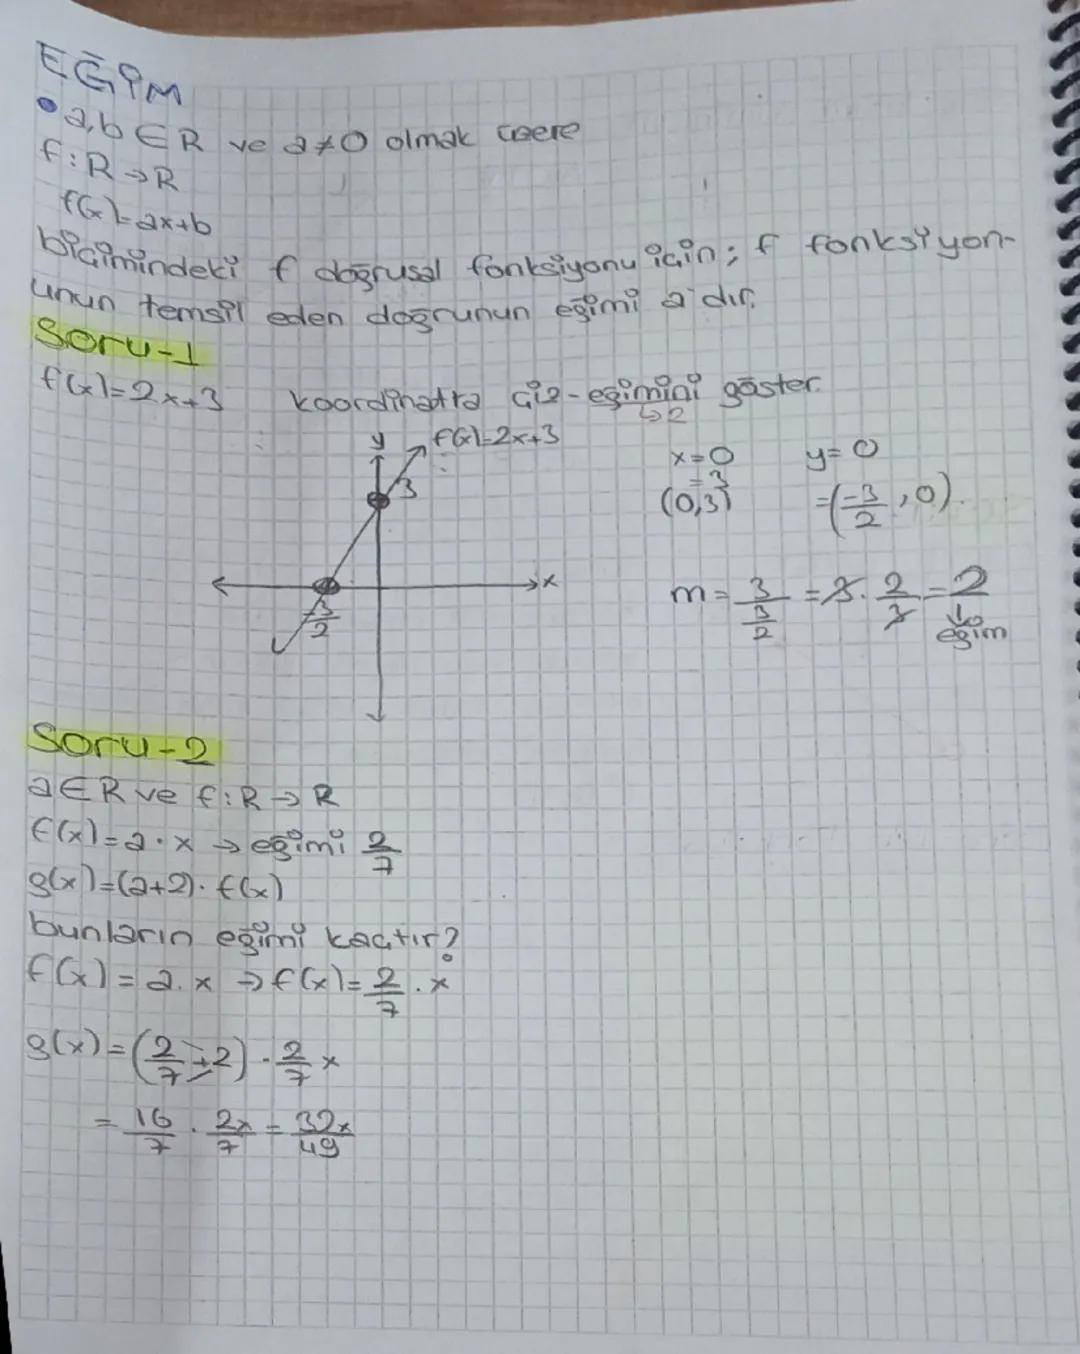 EĞİM
• a,b ∈ R ve a≠0 olmak üzere
f: R → R
f(x)=ax+b
biçimindeki f doğrusal fonksiyonu için; f fonksiyon-
unun temsil eden doğrunun eğimi a'dır.
Soru-1
f(x)=2x+3 koordinatta çiz-eğimini göster.
↳2
y f(x)=2x+3
3
x
-3/2
x=0 y=0
=3
(0,3) =(-3/2, 0).
m= 3/(3/2) = 3 · 2/3 = 2
↳ eğim
Soru-2
a∈R ve f: R → R
f(x)=a·x → eğimi 2/7
g(x)=(a+2)·f(x)
bunların eğimi kaçtır?
f(x)=a.x → f(x)=2/7 . x
g(x)=(2/7+2) · 2/7 x
= 16/7 · 2x/7 = 32x/49